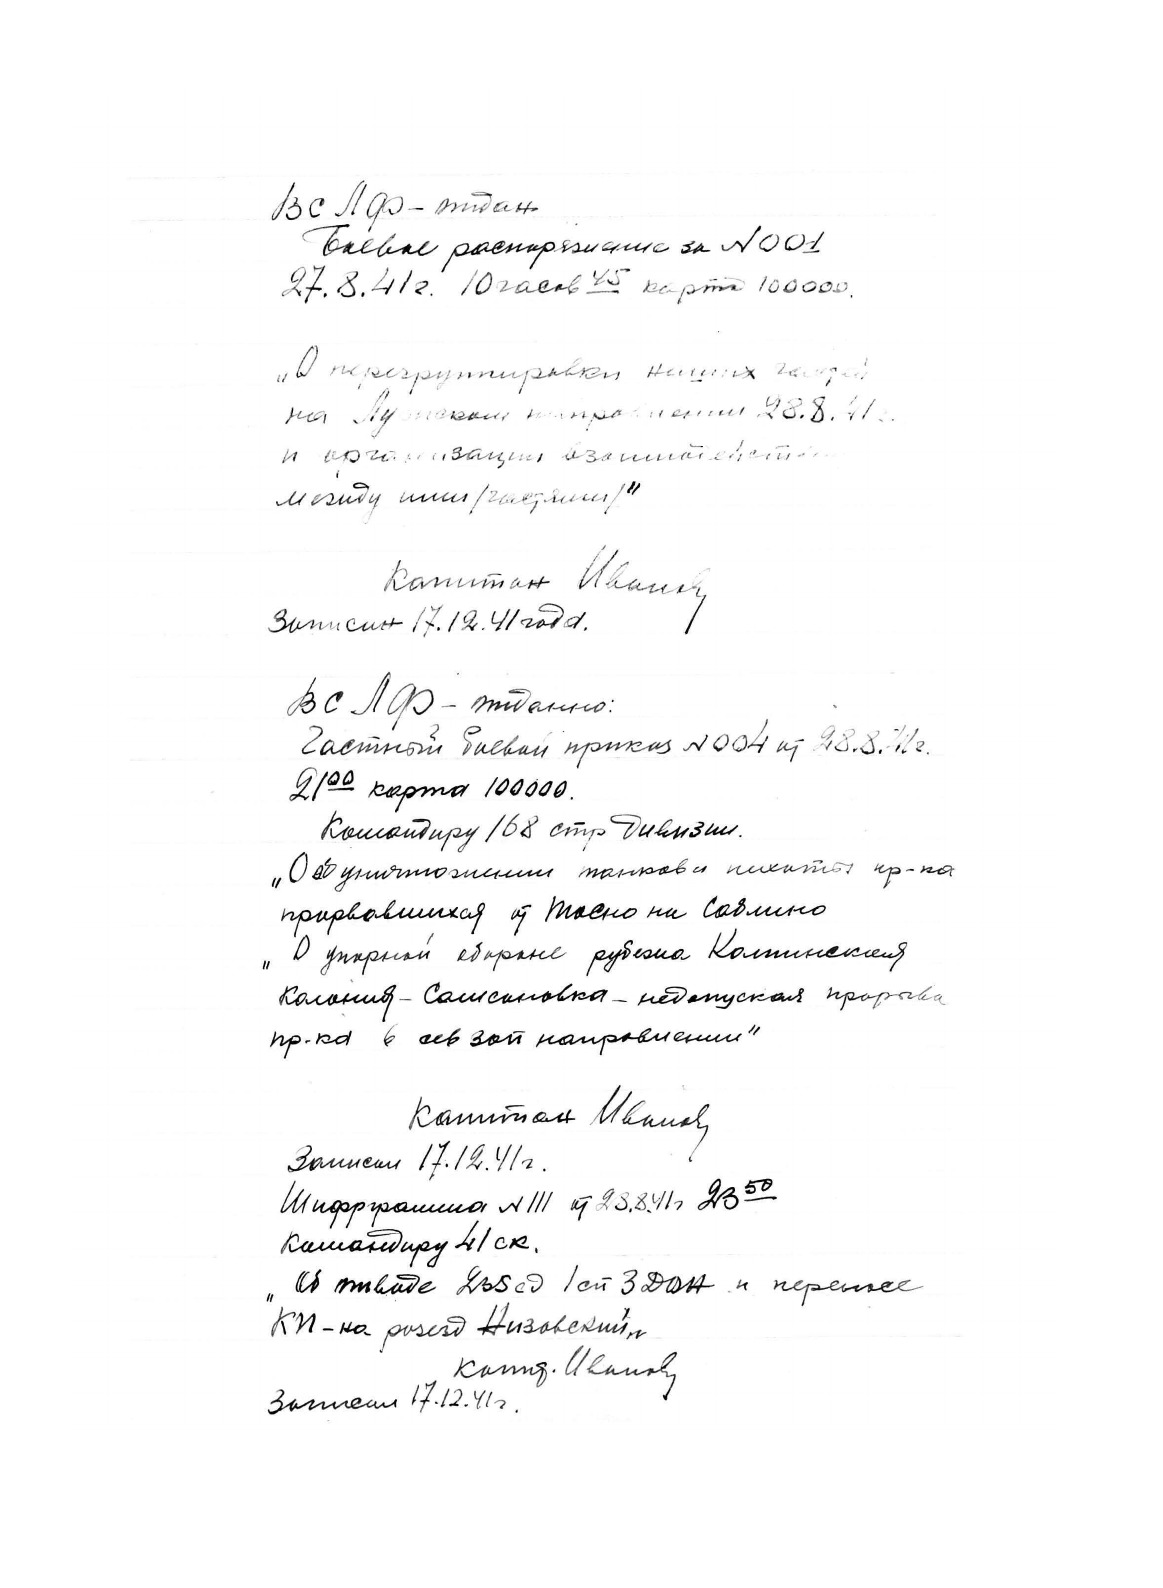 ВС ЛФ – ждан
Боевое распоряжение за №001
27.8.41г. 10 часов 45 карта 100000.
„О перегруппировки наших частей
на Лужском направлении 28.8.41г.
и организации взаимодействия
между ними /частями/"
Капитан Иванов
Записан 17.12.41 года.
ВС ЛФ – жданно:
Частный боевой приказ №004 от 28.8.41г.
21 00 карта 100000.
Командиру 168 стр дивизии.
„Об уничтожении танков и пехоты пр-ка
прорвавшихся от Тосно на Саблино
„О упорной обороне рубежа
Колония – Самсоновка – недопуская прорыва
пр-ка в сев зап направлении"
Капитан Иванов
Записан 17.12.41г.
Шифрграмма №111 от 28.8.41г 23 50
Командиру 41 ск.
„Об отводе 235 сд 1 сп 3 ДНО и переносе
КП – на разезд Низовский„
капит. Иванов
Записан 17.12.41г.